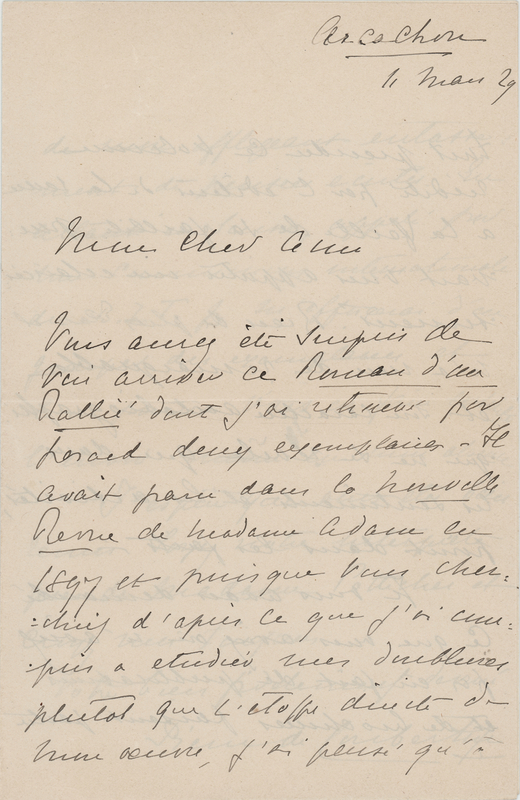 Arcachon
11 Mars 29
Mon cher ami
Vous aurez été surpris de
voir arriver ce Roman d'un
Rallié dont j'ai retrouvé par
hasard deux exemplaires - Il
avait paru dans la Nouvelle
Revue de madame Adam en
1897 et puisque vous cher-
-chiez d'après ce que j'ai com-
-pris a etudier mes
plutot que l'étoffe directe de
mon œuvre, j'ai pensé qu'à